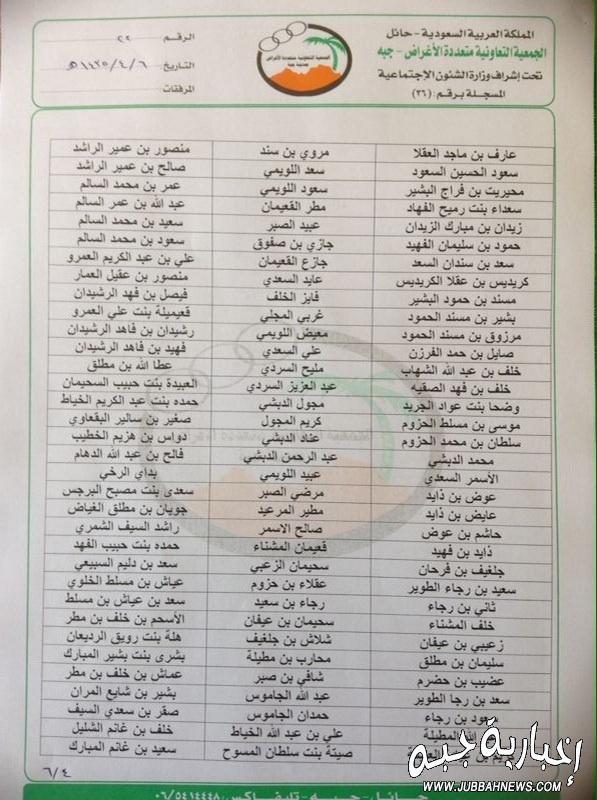 المملكة العربية السعودية - حائل
الجمعية التعاونية متعددة الأغراض - جبه
تحت إشراف وزارة الشئون الإجتماعية
المسجلة برقم: (٣٦)
الجمعية التعاونية متعددة الأغراض
الرقم ٢٢
التاريخ ١٤٣٥/٤/٦هـ
المرفقات
عارف بن ماجد العقلا مروي بن سند منصور بن عمير الراشد
سعود الحسين السعود سعد اللويمي صالح بن عمير الراشد
محيريت بن فراج البشير سعود اللويمي عمر بن محمد السالم
سعداء بنت رميح الفهاد مطر القعيمان عبد الله بن عمر السالم
زيدان بن مبارك الزيدان عبيد الصبر سعيد بن محمد السالم
حمود بن سليمان الفهيد جازي بن صفوق سعود بن محمد السالم
سعد بن سندان السعد جازع القعيمان علي بن عبد الكريم العمرو
كريديس بن عقلا الكريديس عايد السعدي منصور بن عقيل العمار
مسند بن حمود البشير فايز الخلف فيصل بن فهد الرشيدان
بشير بن مسند الحمود غربي المجلي قعيميلة بنت علي العمرو
مرزوق بن مسند الحمود معيض اللويمي رشيدان بن فاهد الرشيدان
صايل بن حمد الفرزن علي السعدي فهيد بن فاهد الرشيدان
خلف بن عبد الله الشهاب مليح السردي عطا الله بن مطلق
خلف بن فهد الصقيه عبد العزيز السردي العبيدة بنت حبيب السحيمان
وضحا بنت عواد الجريد مجول الدبشي حمده بنت عبد الكريم الخياط
موسى بن مسلط الحزوم كريم المجول صغير بن سالير البقعاوي
سلطان بن محمد الحزوم عناد الدبشي دواس بن هزيم الخطيب
محمد الدبشي عبد الرحمن الدبشي فالح بن عبد الله الدهام
الأسمر السعدي عبيد اللويمي بداي الرخي
عوض بن ذايد مرضي الصبر سعدى بنت مصبح البرجس
عايض بن ذايد مطير المرعيد جويان بن مطلق الغياض
هاشم بن عوض صالح الاسمر راشد السيف الشمري
ذايد بن فهيد قعيمان المشناء حمده بنت حبيب الفهد
جلغيف بن فرحان سحيمان الزعبي سعد بن دليم السبيعي
سعيد بن رجاء الطوير عقلاء بن حزوم عياش بن مسلط الخلوي
ثاني بن رجاء رجاء بن سعيد سعد بن عياش بن مسلط
خلف المشناء سحيمان بن عيفان الأسحم بن خلف بن مطر
زعيبي بن عيفان شلاش بن جلغيف هلة بنت رويق الرديعان
سليمان بن مطلق محارب بن مطيلة بشرى بنت بشير المبارك
عضيب بن حضرم شافي بن صبر عماش بن خلف بن مطر
سعد بن رجا الطوير عبد الله الجاموس بشير بن شايع المران
سعود بن رجاء حمدان الجاموس صقر بن سعدي السيف
الله المطيلة علي بن عبد الله الخياط خلف بن غانم الشليل
كريم بن صيتة بنت سلطان المسوح سعيد بن غانم المبارك
٦/٤
إخبارية جبه
WWW.JUBBAHNEWS.COM
حائل - جبه - تليفاكس: ٠٦/٥٤١٤٤٤٨